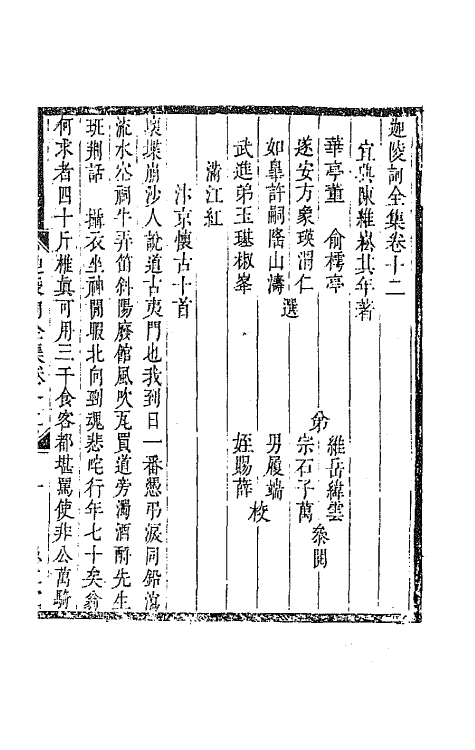 迦陵詞全集卷十二
宜興陳維崧其年著
華亭董 俞樗亭
遂安方象瑛渭仁
如皋許嗣隆山濤
武進弟玉璂椒峯
選
弟
維岳緯雲
宗石子萬
叅閱
男履端
姪賜薛
校
滿江紅
汴京懷古十首
壞堞崩沙人說道古夷門也我到日一番憑弔淚同鉛瀉
流水空祠牛弄笛斜陽廢館風吹瓦買道旁濁酒酹先生
班荆話 攝衣坐神閒暇北向剄魂悲咤行年七十矣翁
何求者四十斤椎真可用三千食客都堪罵使非公萬騎